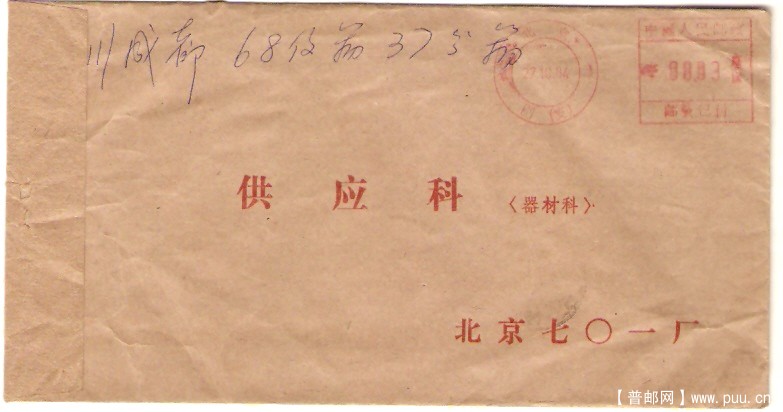 川成都68信箱37分箱
中国人民邮政
0003
邮资已付
供应科〈器材科〉
北京七〇一厂
【普邮网】www.puu.cn